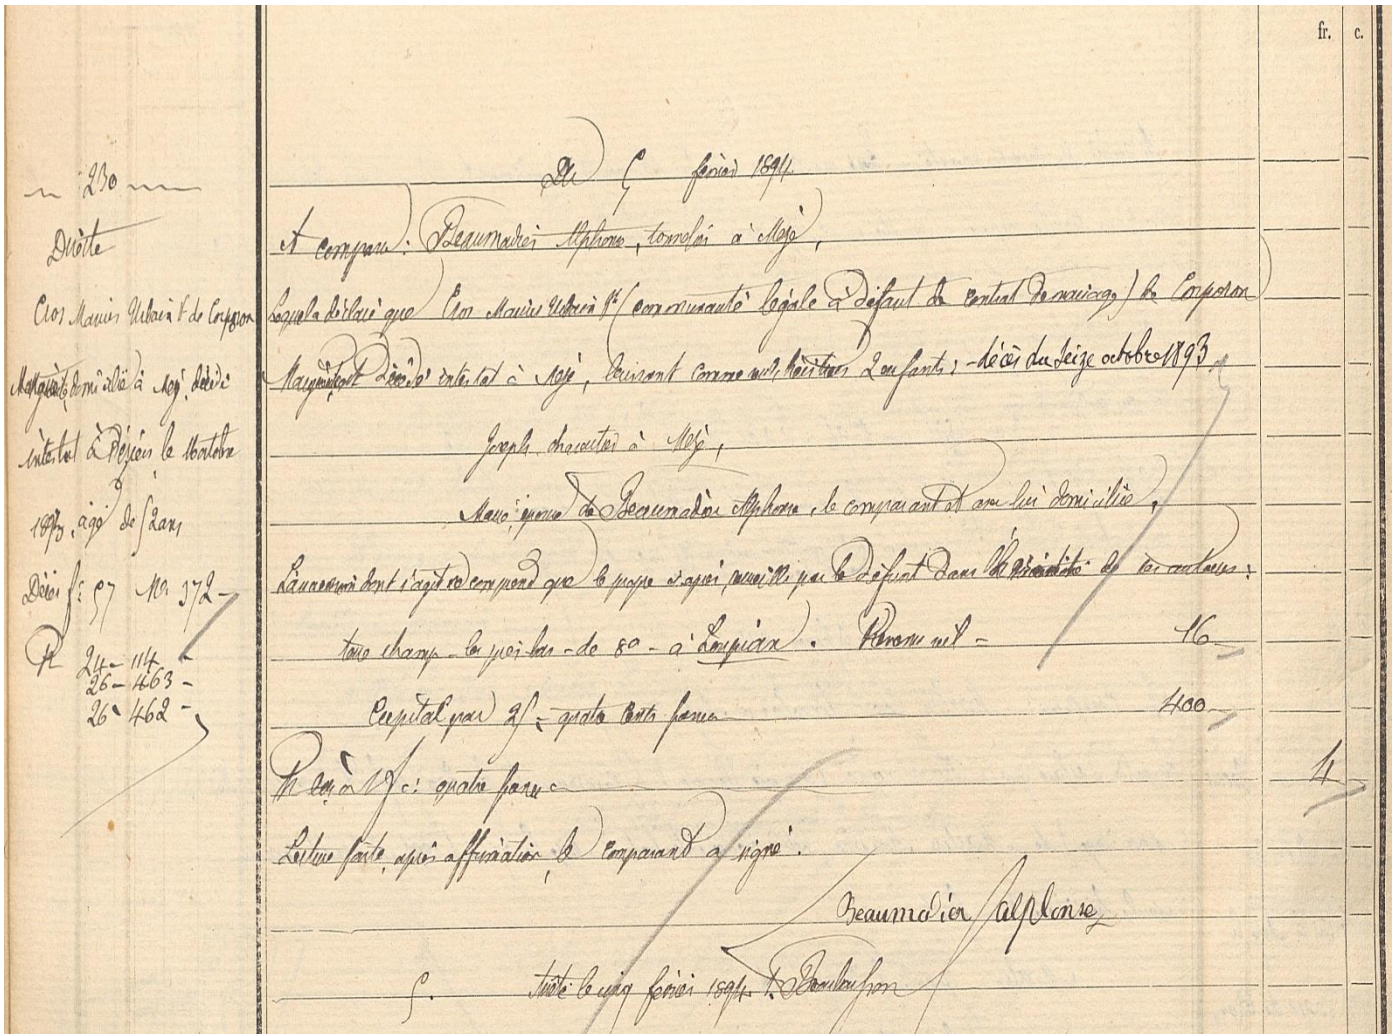 fr. c.
230
Directe
Cros Marius Urbain Vf de Corporon
Marguerite, domicilié à Mèze, décédé
intestat à Béziers le 16 octobre
1893, âgé de 52 ans
Décès fo 57 No 372
R 24 - 114 -
26 - 463 -
26 - 462 -
Du 5 février 1894
A comparu : Beaumadier Alphonse, tonnelier à Mèze,
Lequel a déclaré que Cros Marius Urbain Vf (communauté légale à défaut de contrat de mariage) de Corporon
Marguerite est décédé intestat à Mèze, laissant comme seuls héritiers 2 enfants : - décès du seize octobre 1893
Joseph, à Mèze,
épouse de Beaumadier Alphonse, le comparant et avec lui domiciliée,
La succession dont s'agit se compend que le propre ci après, recueilli par le défunt dans de ses auteurs :
champ - - de 80 - à Loupian. Revenu net = 16
Capital par 25 = quatre cents francs 400
à 1 f % : quatre francs 4
Lecture faite, après affirmation, le comparant a signé.
Beaumadier Alphonse
5. Arrêté le cinq février 1894.